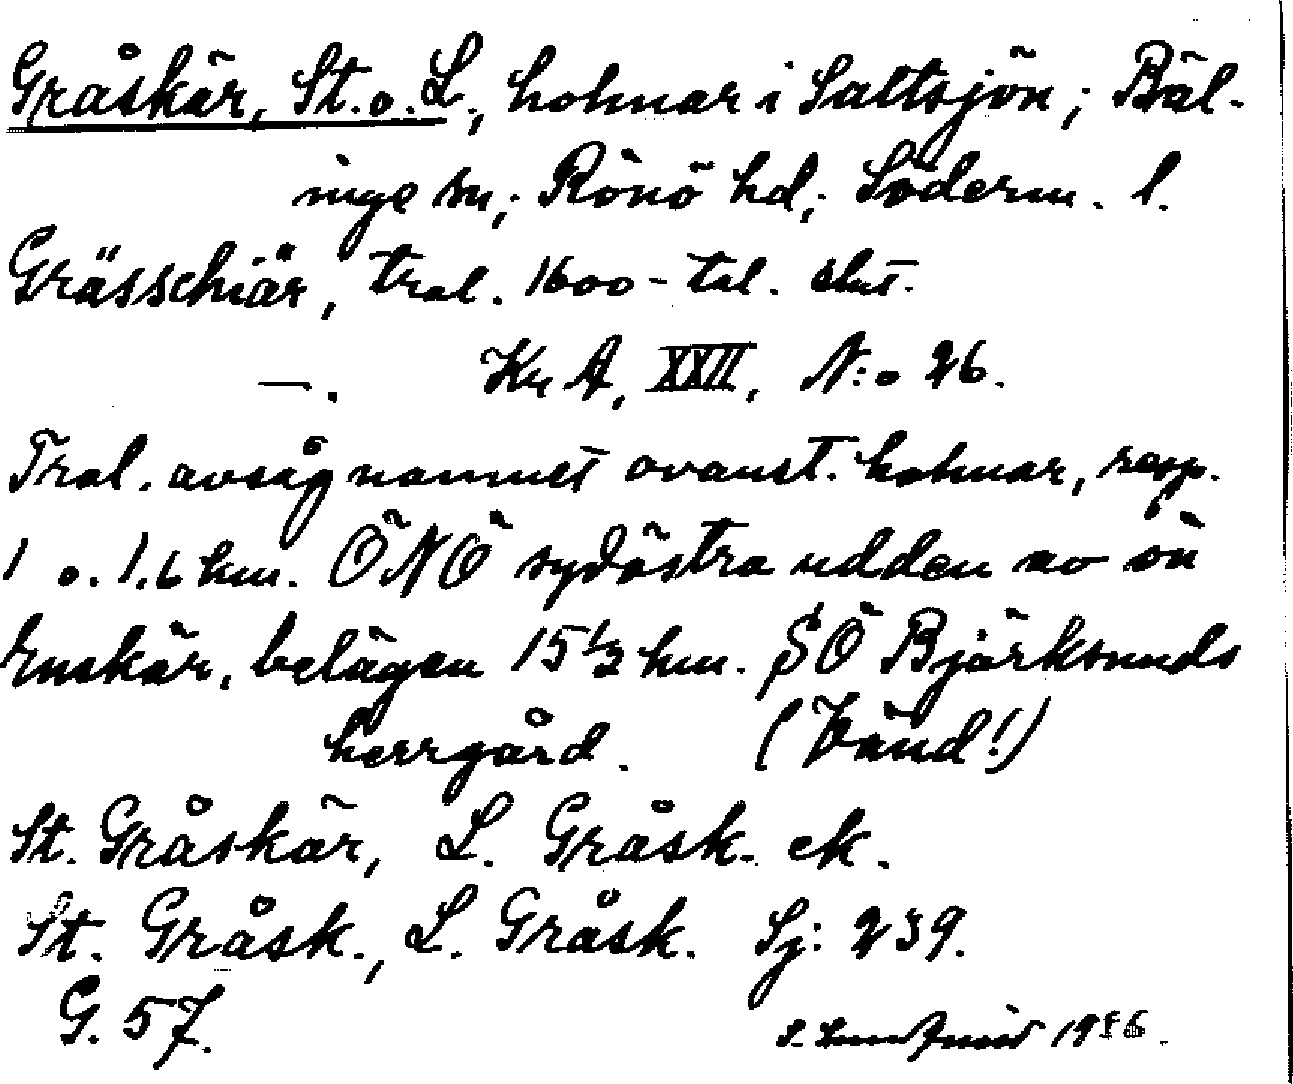 Gråskär, St. o. L., holmar i Saltsjön; Bäl-
inge sn; Rönö hd; Söderm. l.
Grässchiär, trol. 1600-tal. slut.
—. Kr A, XXII, N:o 26.
Trol. avsåg namnet ovanst. holmar, resp.
1 o. 1,6 km. ÖNÖ sydöstra udden av ön
Enskär, belägen 15 1/2 km. SÖ Björksunds
herrgård. (Vänd!)
St. Gråskär, L. Gråsk. ek.
St. Gråsk., L. Gråsk. Sj: 239.
G. 57.
S. 19